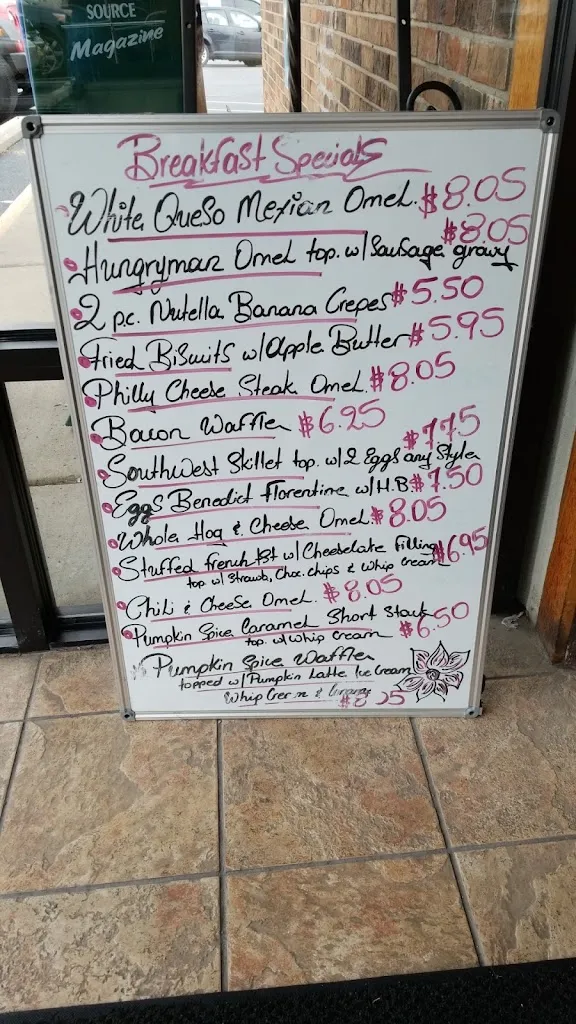 SOURCE
Magazine
Breakfast Specials
White Queso Mexian Omel. $8.05
$8.05
Hungryman Omel top. w/Sausage gravy
2 p.c. Nutella Banana Crepes $5.50
Fried Biscuits w/Apple Butter $5.95
Philly Cheese Steak Omel. $8.05
Bacon Waffle $6.25
$7.75
Southwest Skillet top. w/2 Eggs any Style
Eggs Benedict Florentine w/H.B. $7.50
Whole Hog & Cheese Omel. $8.05
Stuffed french tst w/Cheesecake filling $6.95
top w/ Strawb, Choc. chips & Whip Cream
Chili & Cheese Omel. $8.05
Pumpkin Spice Caramel Short Stack $6.50
top. w/ whip cream
Pumpkin Spice Waffle
topped w/Pumpkin Latte Ice Cream
Whip Cream &